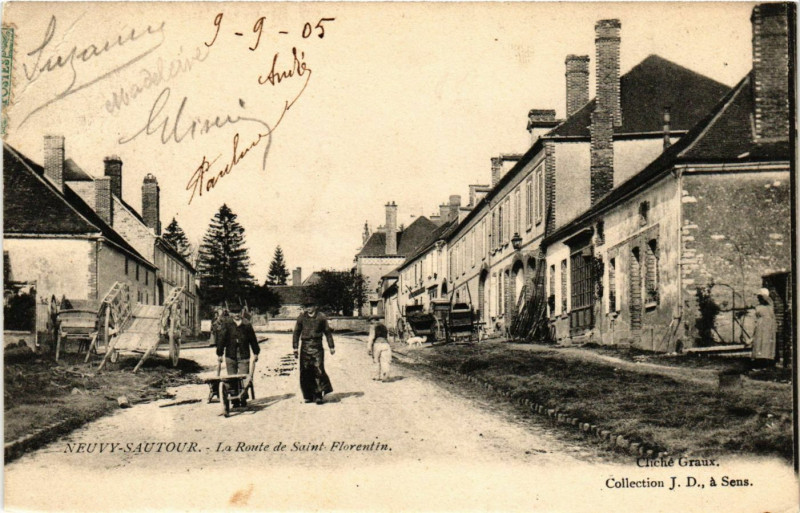 POSTES
9-9-05
Suzanne
Madeleine
André
Pauline
NEUVY-SAUTOUR. - La Route de Saint Florentin.
Cliché Graux.
Collection J. D., à Sens.